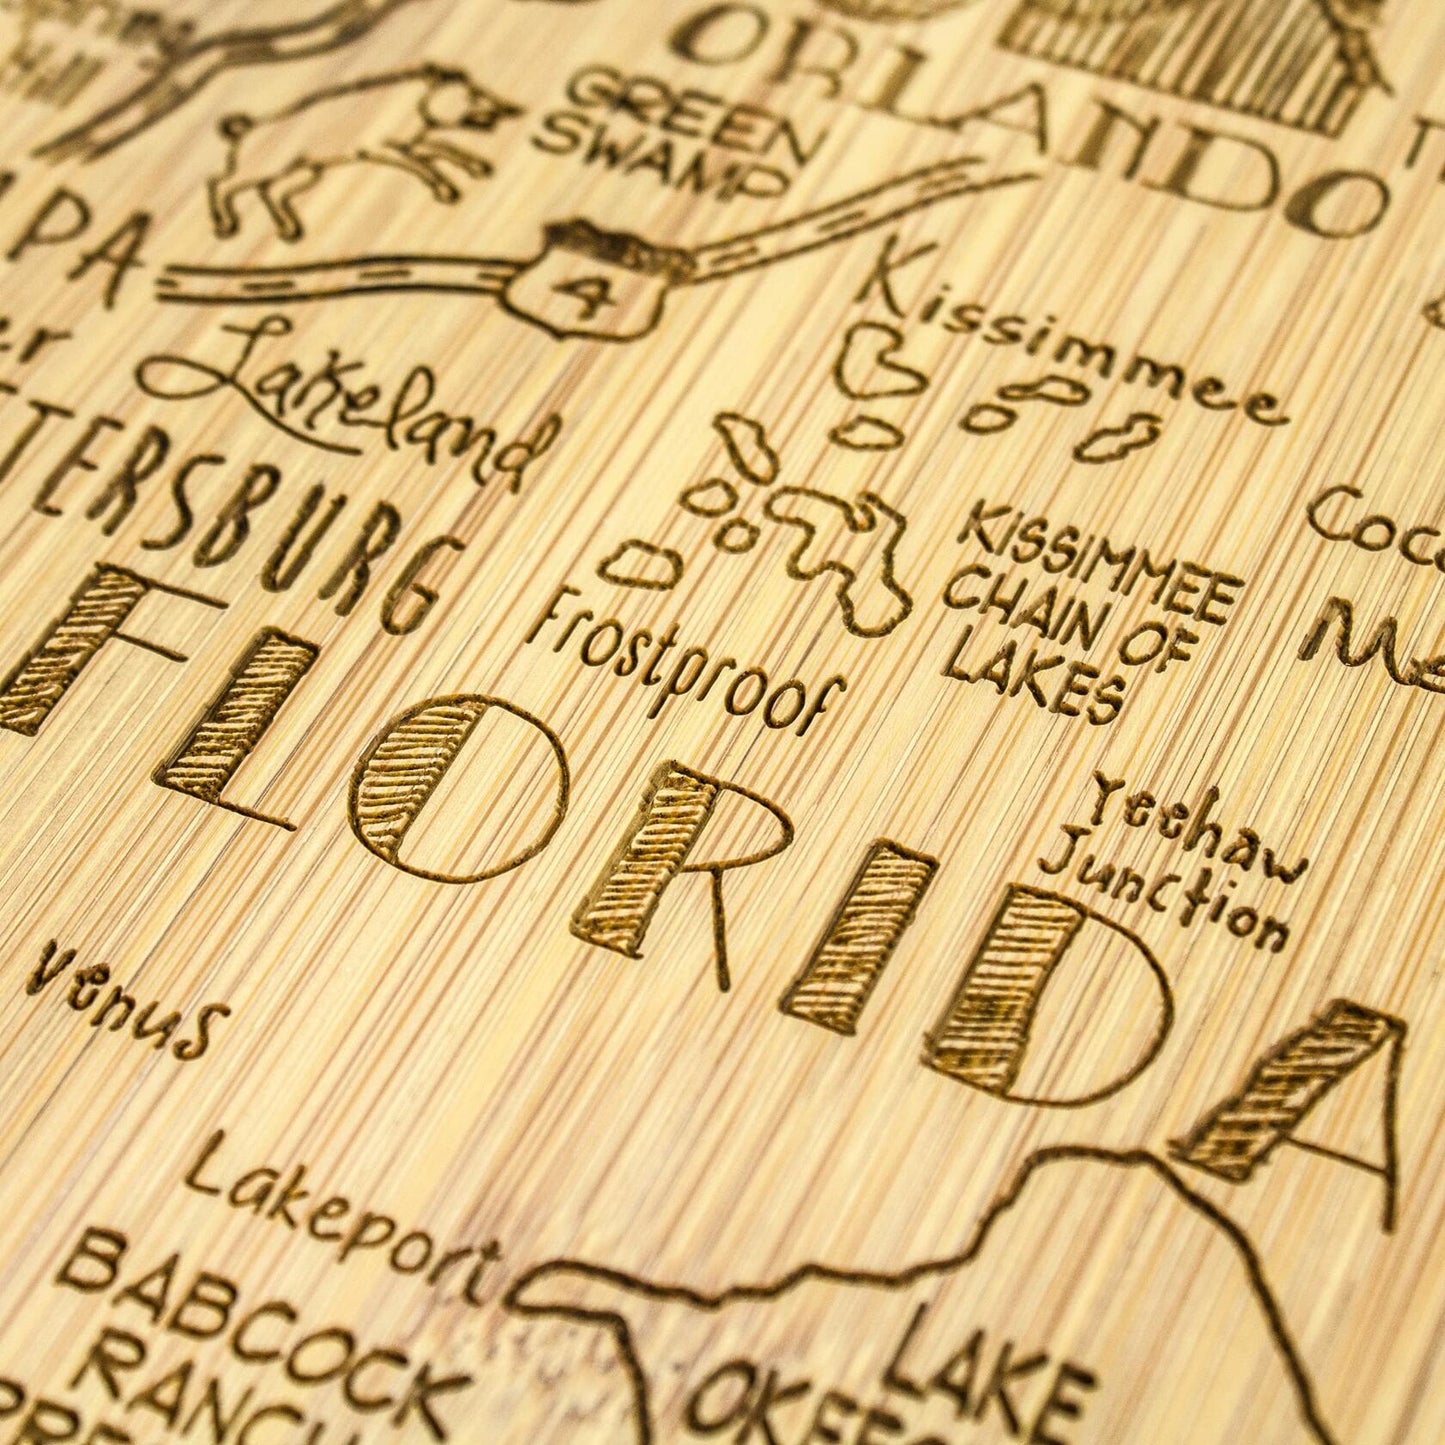 ORLANDO
GREEN
SWAMP
PA
4
Kissimmee
Lakeland
TERSBURG
KISSIMMEE
CHAIN OF
LAKES
Coco
Me
Frostproof
FLORIDA
Yeehaw
Junction
Venus
Lakeport
BABCOCK
RANCH
LAKE
OKEE